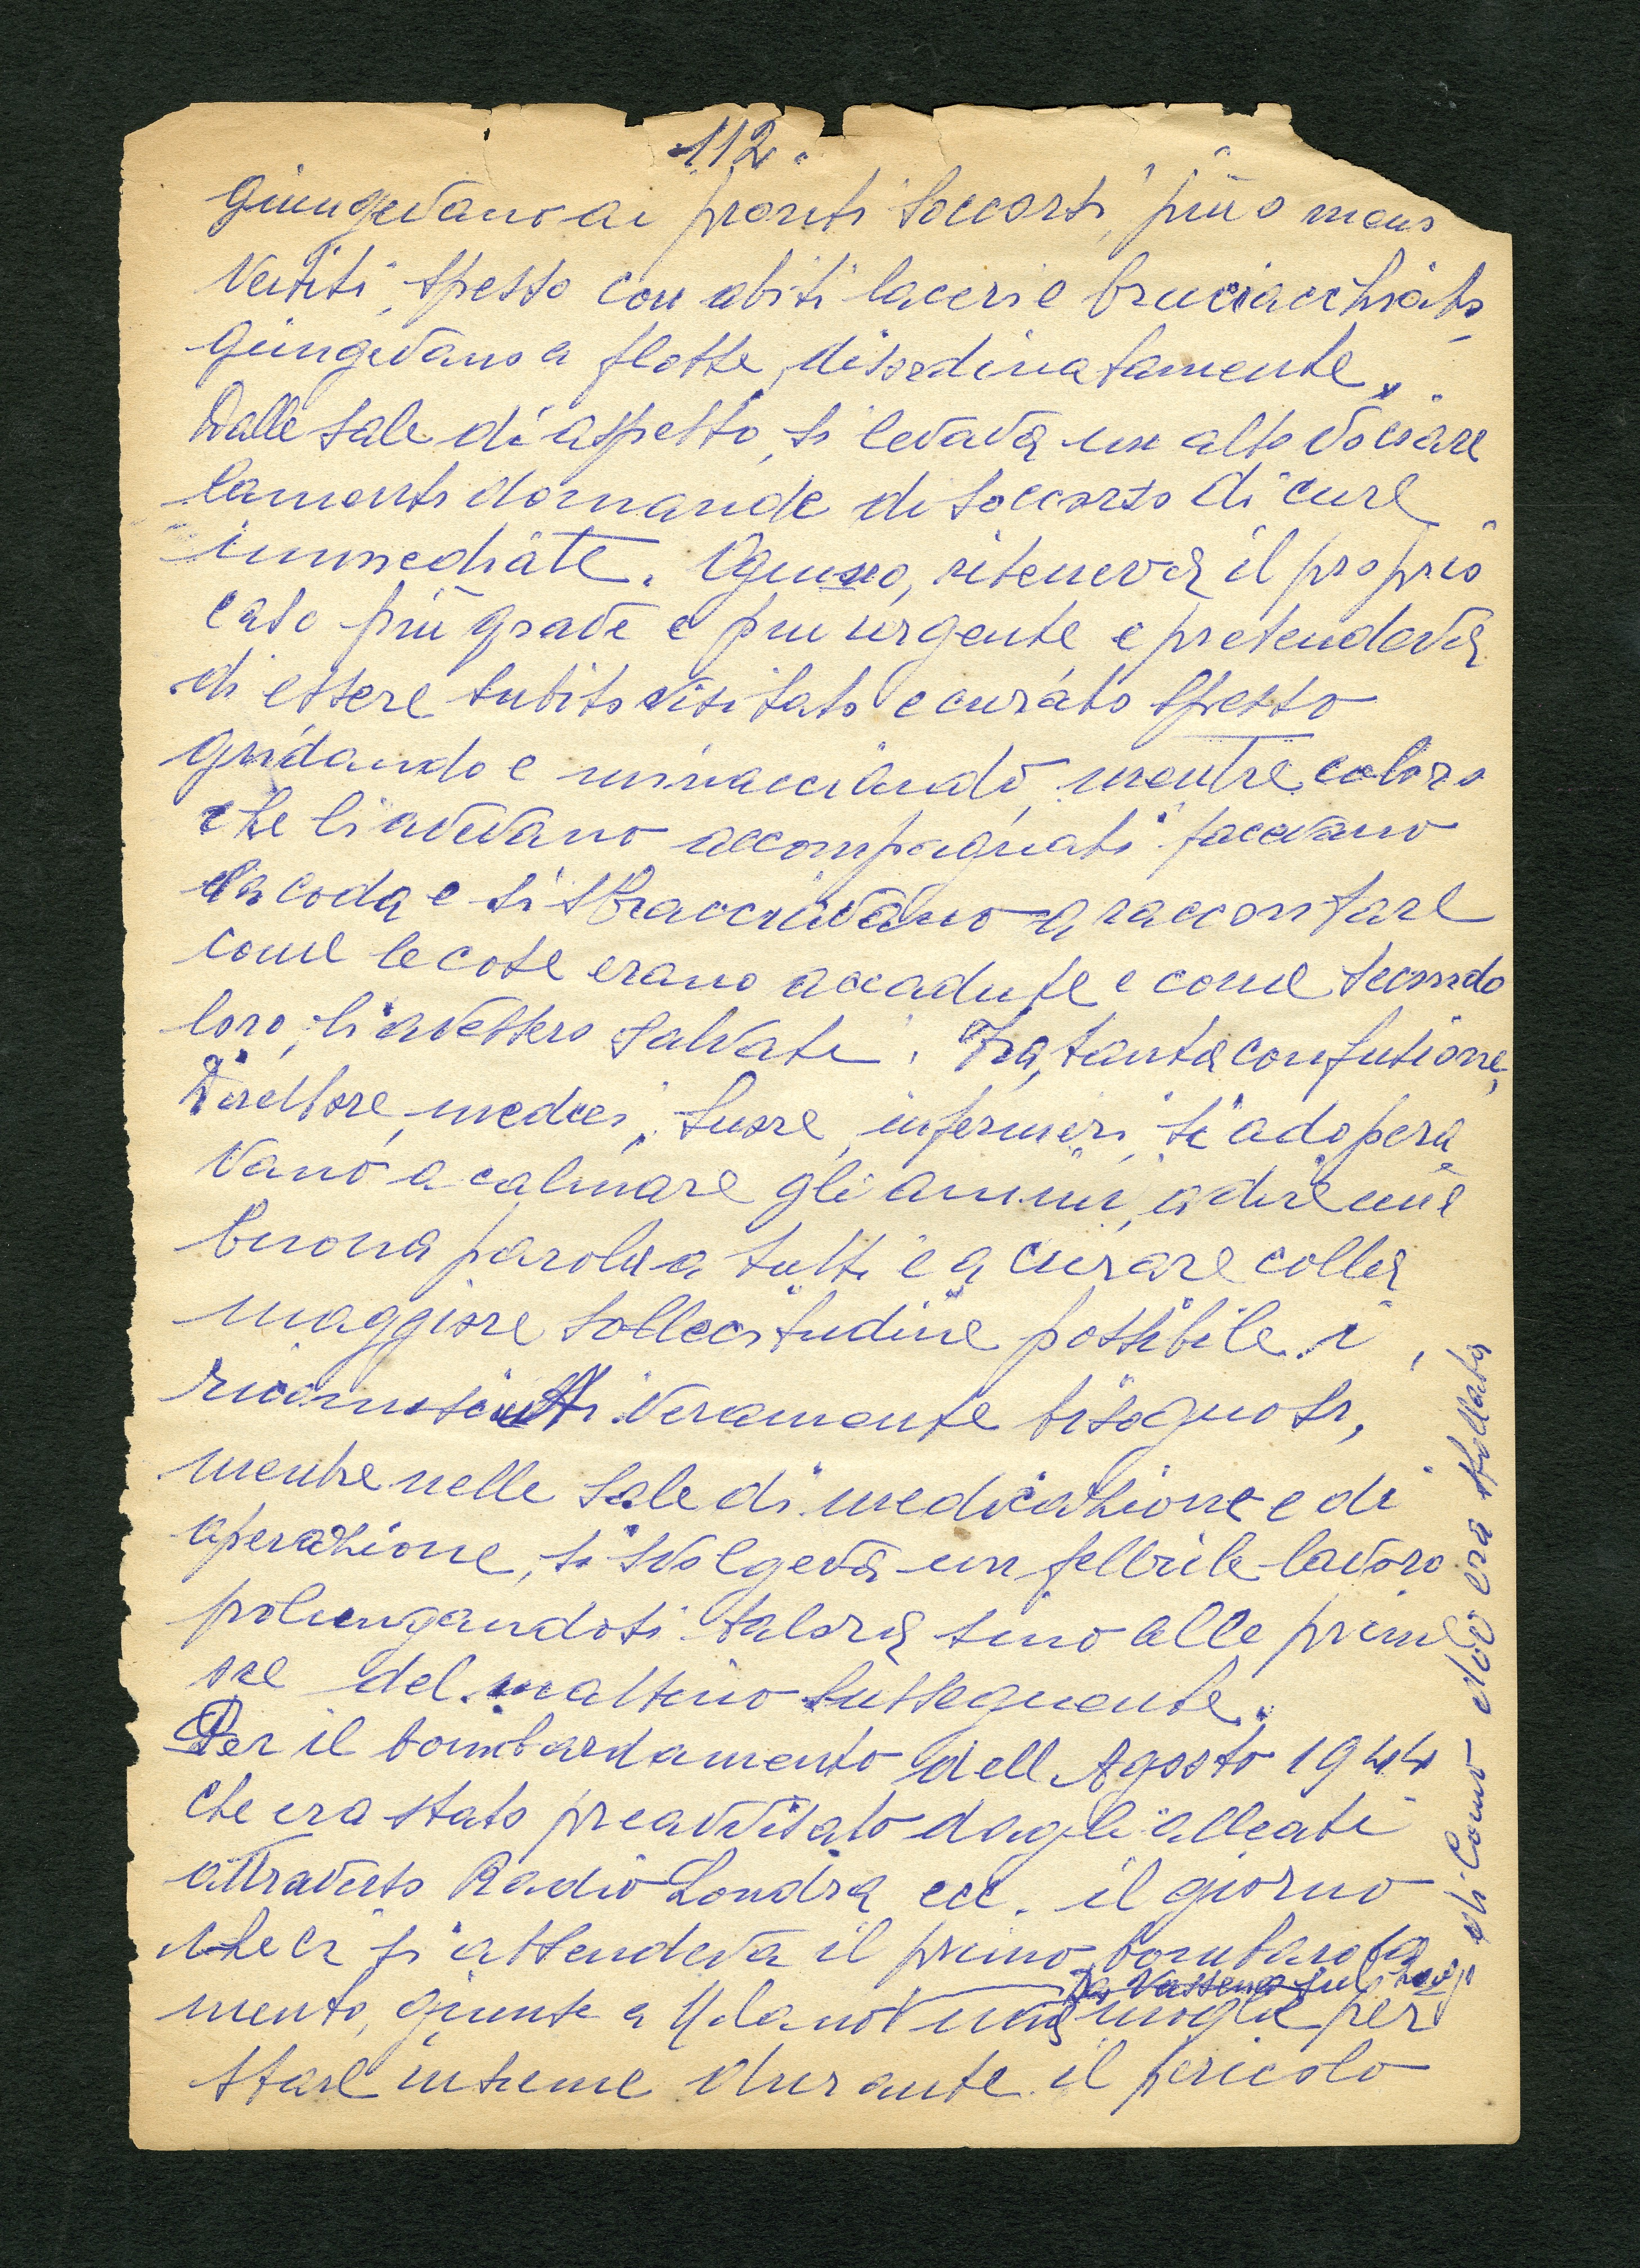 112.
giungevano ai pronti soccorsi, più o meno
vestiti, spesso con abiti laceri e bruciacchiati,
giungevano a flotte, disordinatamente.
Dalle sale di aspetto, si levava un alto vociare
lamenti domande di soccorso di cure
immediate. Ognuno, riteneva il proprio
caso più grave e piu urgente e pretendeva
di essere subito visitato e curato spesso
gridando e minacciando, mentre coloro
che li avevano accompagnati facevano
la coda e si sbracciavano a raccontare
come le cose erano accadute e come secondo
loro, li avessero salvati. Fra, tanta confusione,
Direttore, medici, suore, infermieri, si adopera
vano a calmare gli animi, a dire una
buona parola a tutti e a curare colla
maggiore sollecitudine possibile i
riconosciuti veramente bisognosi,
mentre nelle sale di medicazione e di
operazione, si svolgeva un febbrile lavoro
prolungandosi talora sino alle prime
ore del mattino susseguente.
Per il bombardamento dell Agosto 1944
che era stato preavvisato dagli alleati
attraverso Radio Londra ecc. il giorno
che ci si attendeva il primo bombarda
mento, giunse a Milano mia moglie per
da Vassena sul lago
di Como dov era sfollata
stare insieme durante il pericolo